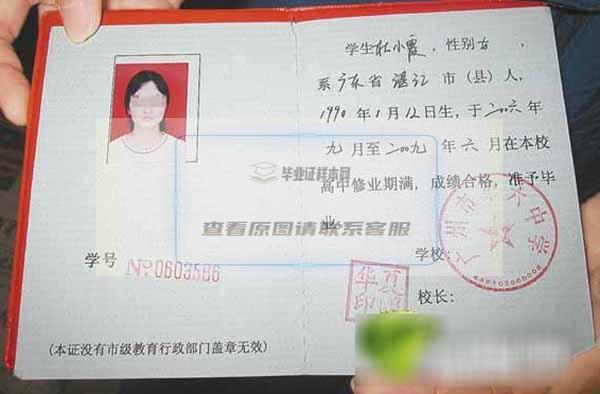 学生杜小霞，性别女，
系广东省湛江市（县）人，
1990年1月12日生，于二00六年
九月至二00九年六月在本校
高中修业期满，成绩合格，准予毕
业
毕业证样本网
查看原图请联系客服
学号 №0603586
学校：
校长：
(本证没有市级教育行政部门盖章无效)